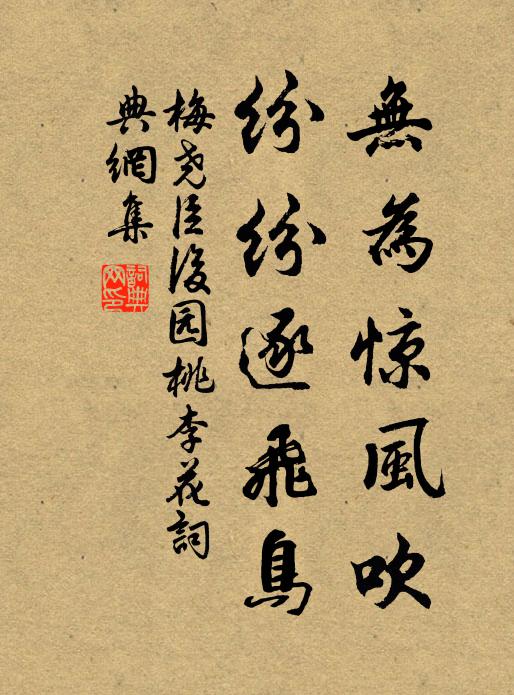 無為惊風吹
紛紛逐飛鳥
梅尧臣後园桃李花詞
典網集
詞典网印